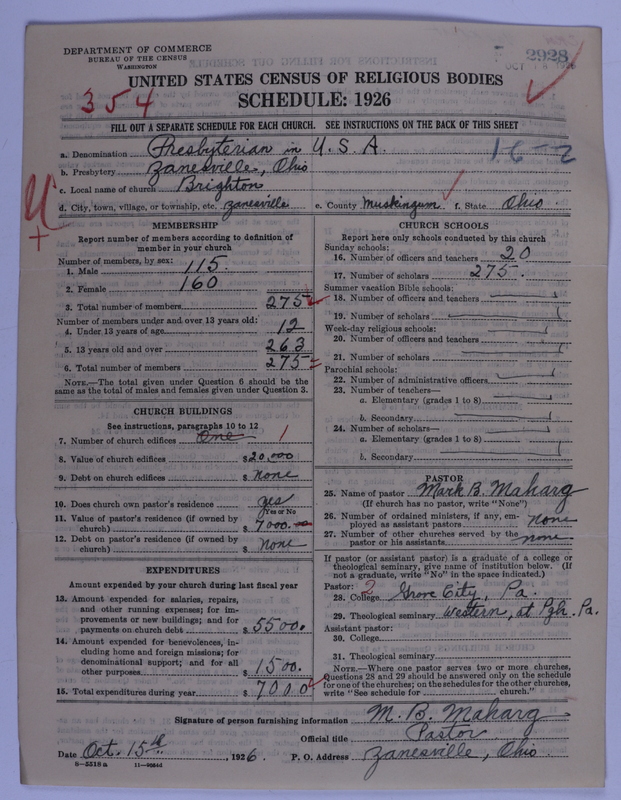 DEPARTMENT OF COMMERCE
BUREAU OF THE CENSUS
WASHINGTON
2928
OCT 18
UNITED STATES CENSUS OF RELIGIOUS BODIES
354
SCHEDULE: 1926
FILL OUT A SEPARATE SCHEDULE FOR EACH CHURCH. SEE INSTRUCTIONS ON THE BACK OF THIS SHEET
a. Denomination Presbyterian in U.S.A.
16-2
b. Presbytery Zanesville, Ohio
c. Local name of church Brighton
d. City, town, village, or township, etc. Zanesville e. County Muskingum f. State Ohio
MEMBERSHIP
Report number of members according to definition of
member in your church
Number of members, by sex:
1. Male 115.
2. Female 160
3. Total number of members 275
Number of members under and over 13 years old:
4. Under 13 years of age 12
5. 13 years old and over 263
6. Total number of members 275
NOTE.—The total given under Question 6 should be the
same as the total of males and females given under Question 3.
CHURCH BUILDINGS
See instructions, paragraphs 10 to 12
7. Number of church edifices One 1
8. Value of church edifices $20,000
9. Debt on church edifices $ none
10. Does church own pastor's residence yes
Yes or No
11. Value of pastor's residence (if owned by
church) $7000.
12. Debt on pastor's residence (if owned by
church) $ None
EXPENDITURES
Amount expended by your church during last fiscal year
13. Amount expended for salaries, repairs,
and other running expenses; for im-
provements or new buildings; and for
payments on church debt $5500.
14. Amount expended for benevolences, in-
cluding home and foreign missions; for
denominational support; and for all
other purposes $1500.
15. Total expenditures during year $7000
CHURCH SCHOOLS
Report here only schools conducted by this church
Sunday schools:
16. Number of officers and teachers 20
17. Number of scholars 275.
Summer vacation Bible schools:
18. Number of officers and teachers
19. Number of scholars
Week-day religious schools:
20. Number of officers and teachers
21. Number of scholars
Parochial schools:
22. Number of administrative officers
23. Number of teachers—
a. Elementary (grades 1 to 8)
b. Secondary
24. Number of scholars—
a. Elementary (grades 1 to 8)
b. Secondary
PASTOR
25. Name of pastor Mark B. Maharg
(If church has no pastor, write "None")
26. Number of ordained ministers, if any, em-
ployed as assistant pastors none
27. Number of other churches served by the
pastor or his assistants none
If pastor (or assistant pastor) is a graduate of a college or
theological seminary, give name of institution below. (If
not a graduate, write "No" in the space indicated.)
Pastor: 2
28. College Grove City, Pa.
29. Theological seminary Western, at Pgh. Pa.
Assistant pastor:
30. College
31. Theological seminary
NOTE.—Where one pastor serves two or more churches,
Questions 28 and 29 should be answered only on the schedule
for one of the churches; on the schedules for the other churches,
write "See schedule for church."
Signature of person furnishing information M. B. Maharg
Official title Pastor
Date Oct. 15th, 1926. P. O. Address Zanesville, Ohio
8-5518a 11-9084d